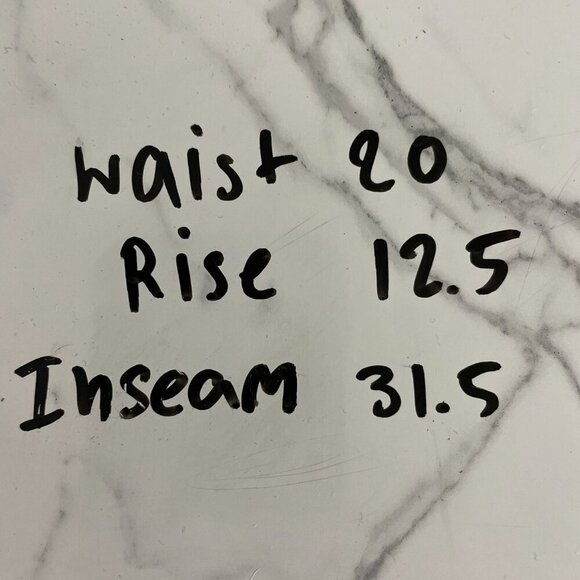 Waist 20
Rise 12.5
Inseam 31.5